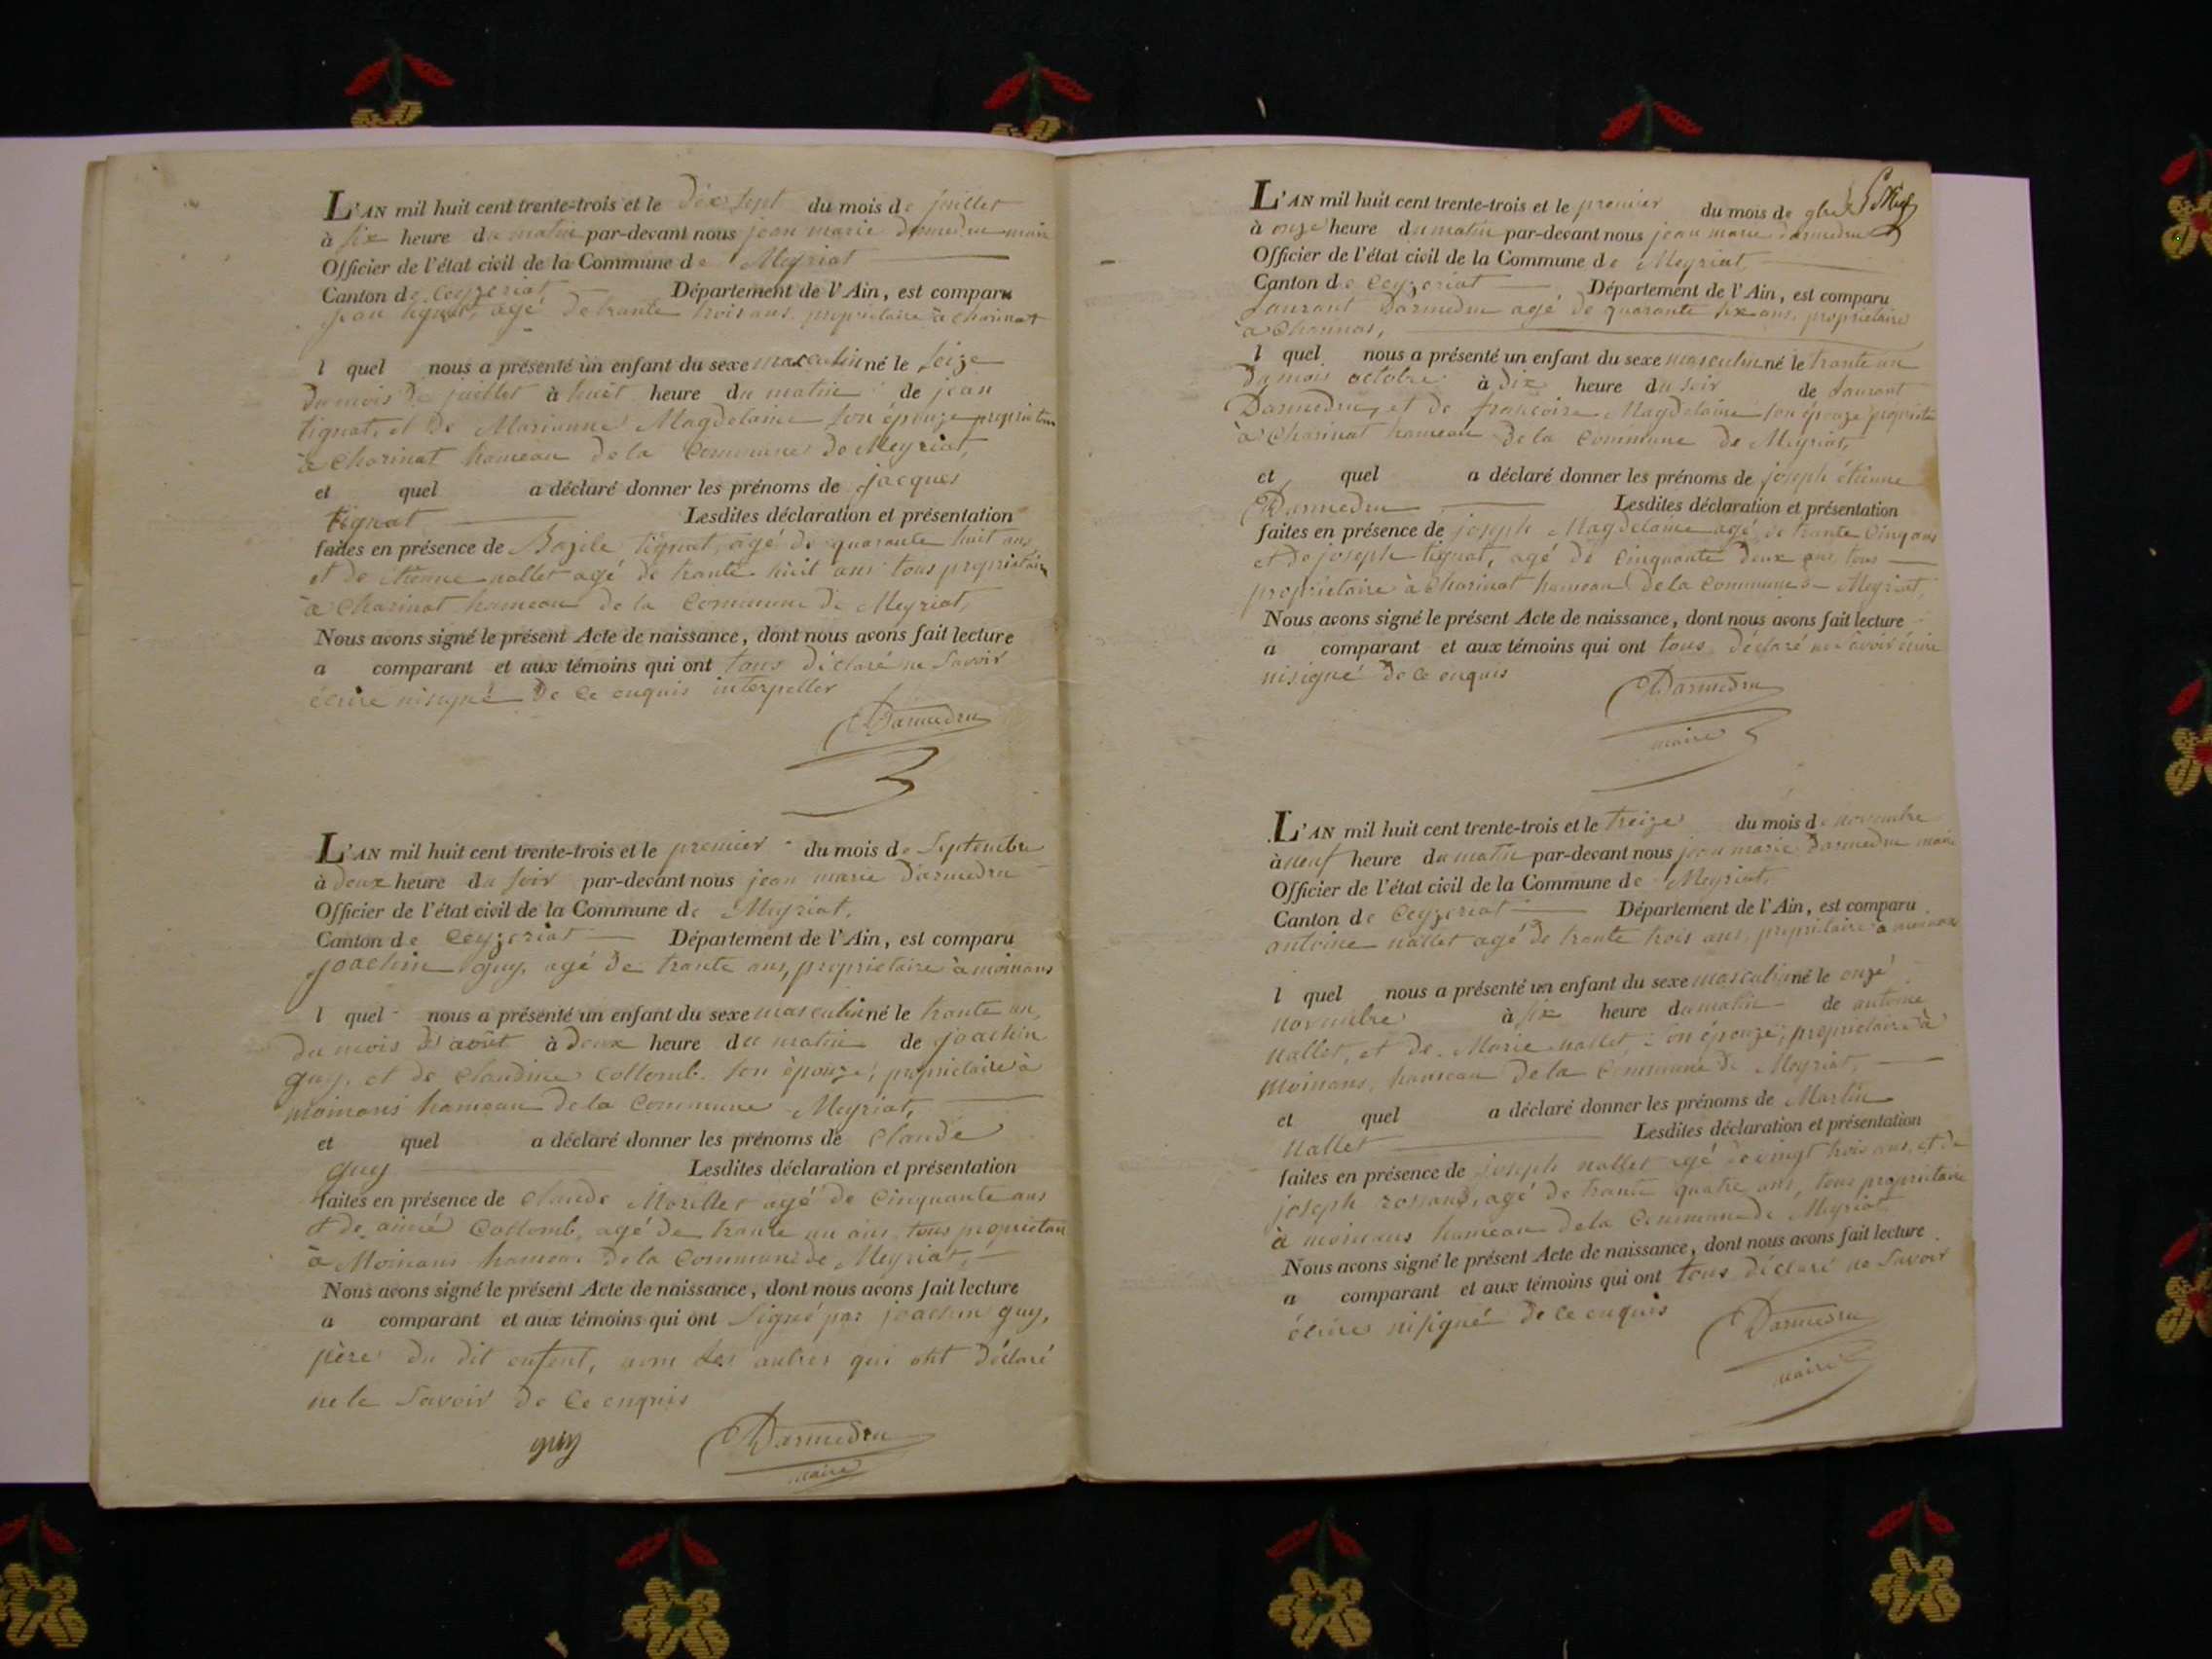 L'AN mil huit cent trente-trois et le dix sept du mois de juillet
à six heure du matin par-devant nous jean marie darmedru maire
Officier de l'état civil de la Commune de Meyriat
Canton de Ceyzeriat Département de l'Ain, est comparu
jean tignat, agé de trante trois ans, proprietaire à charinat
l quel nous a présenté un enfant du sexe masculin né le seize
du mois de juillet à huit heure du matin de jean
tignat, et de Marianne Magdelaine son épouze proprietaire
à Charinat hameau de la Commune de Meyriat,
et quel a déclaré donner les prénoms de jacques
tignat Lesdites déclaration et présentation
faites en présence de Bazile tignat, agé de quarante huit ans
et de etienne nallet agé de trante huit ans tous proprietaire
à Charinat hameau de la Commune de Meyriat,
Nous avons signé le présent Acte de naissance, dont nous avons fait lecture
a comparant et aux témoins qui ont tous déclaré ne savoir
écrire ni signé de ce enquis interpeller
Darmedru
L'AN mil huit cent trente-trois et le premier du mois de Septembre
à deux heure du soir par-devant nous jean marie darmedru
Officier de l'état civil de la Commune de Meyriat,
Canton de Ceyzeriat Département de l'Ain, est comparu
joachin guy, agé de trante ans, proprietaire à moinans
l quel nous a présenté un enfant du sexe masculin né le trante un
du mois d'août à deux heure du matin de joachin
guy, et de claudine Collomb son épouze, proprietaire à
moinans hameau de la Commune Meyriat,
et quel a déclaré donner les prénoms de Claude
guy Lesdites déclaration et présentation
faites en présence de Claude Morellet agé de Cinquante ans
et de aimé Collomb, agé de trante un ans, tous proprietaire
à Moinans hameau de la Commune de Meyriat,
Nous avons signé le présent Acte de naissance, dont nous avons fait lecture
a comparant et aux témoins qui ont Signé par joachin guy,
père du dit enfent, non les autres qui ont déclaré
ne le Savoir de Ce enquis
guy Darmedru
maire
L'AN mil huit cent trente-trois et le premier du mois de 9bre
à onze heure du matin par-devant nous jean marie darmedru
Officier de l'état civil de la Commune de Meyriat
Canton de Ceyzeriat Département de l'Ain, est comparu
Laurant Darmedru agé de quarante six ans, proprietaire
à Charinat,
l quel nous a présenté un enfant du sexe masculin né le trante un
du mois octobre à dix heure du soir de Laurant
Darmedru, et de françoise Magdelaine son épouze proprietaire
à Charinat hameau de la Commune de Meyriat,
et quel a déclaré donner les prénoms de joseph étienne
Darmedru Lesdites déclaration et présentation
faites en présence de joseph Magdelaine agé de trante Cinq ans
et de joseph tignat, agé de Cinquante deux ans tous
proprietaire à Charinat hameau de la Commune de Meyriat,
Nous avons signé le présent Acte de naissance, dont nous avons fait lecture
a comparant et aux témoins qui ont tous déclaré ne savoir écrire
ni signé de ce enquis
Darmedru
maire
L'AN mil huit cent trente-trois et le treize du mois de novembre
à neuf heure du matin par-devant nous jean marie Darmedru maire
Officier de l'état civil de la Commune de Meyriat,
Canton de Ceyzeriat Département de l'Ain, est comparu
antoine nallet agé de trante trois ans, proprietaire à moinans
l quel nous a présenté un enfant du sexe masculin né le onze
novembre à six heure du matin de antoine
nallet, et de Marie nallet, son épouze, proprietaire à
Moinans, hameau de la Commune de Meyriat,
et quel a déclaré donner les prénoms de Martin
Nallet Lesdites déclaration et présentation
faites en présence de joseph nallet agé de vingt trois ans, et de
joseph rossand, agé de trante quatre ans, tous proprietaire
à moinans hameau de la Commune de Meyriat
Nous avons signé le présent Acte de naissance, dont nous avons fait lecture
a comparant et aux témoins qui ont tous déclaré ne Savoir
écrire ni signé de ce enquis
Darmedru
maire